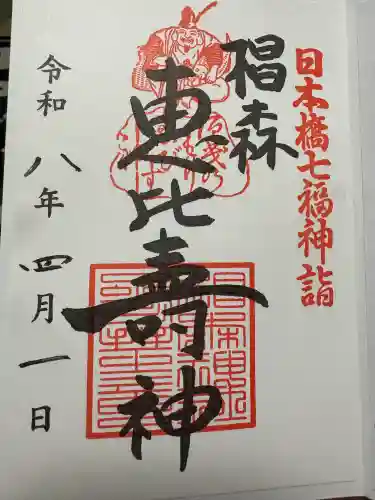 日本橋七福神詣
椙森
恵比壽神
令和八年四月一日